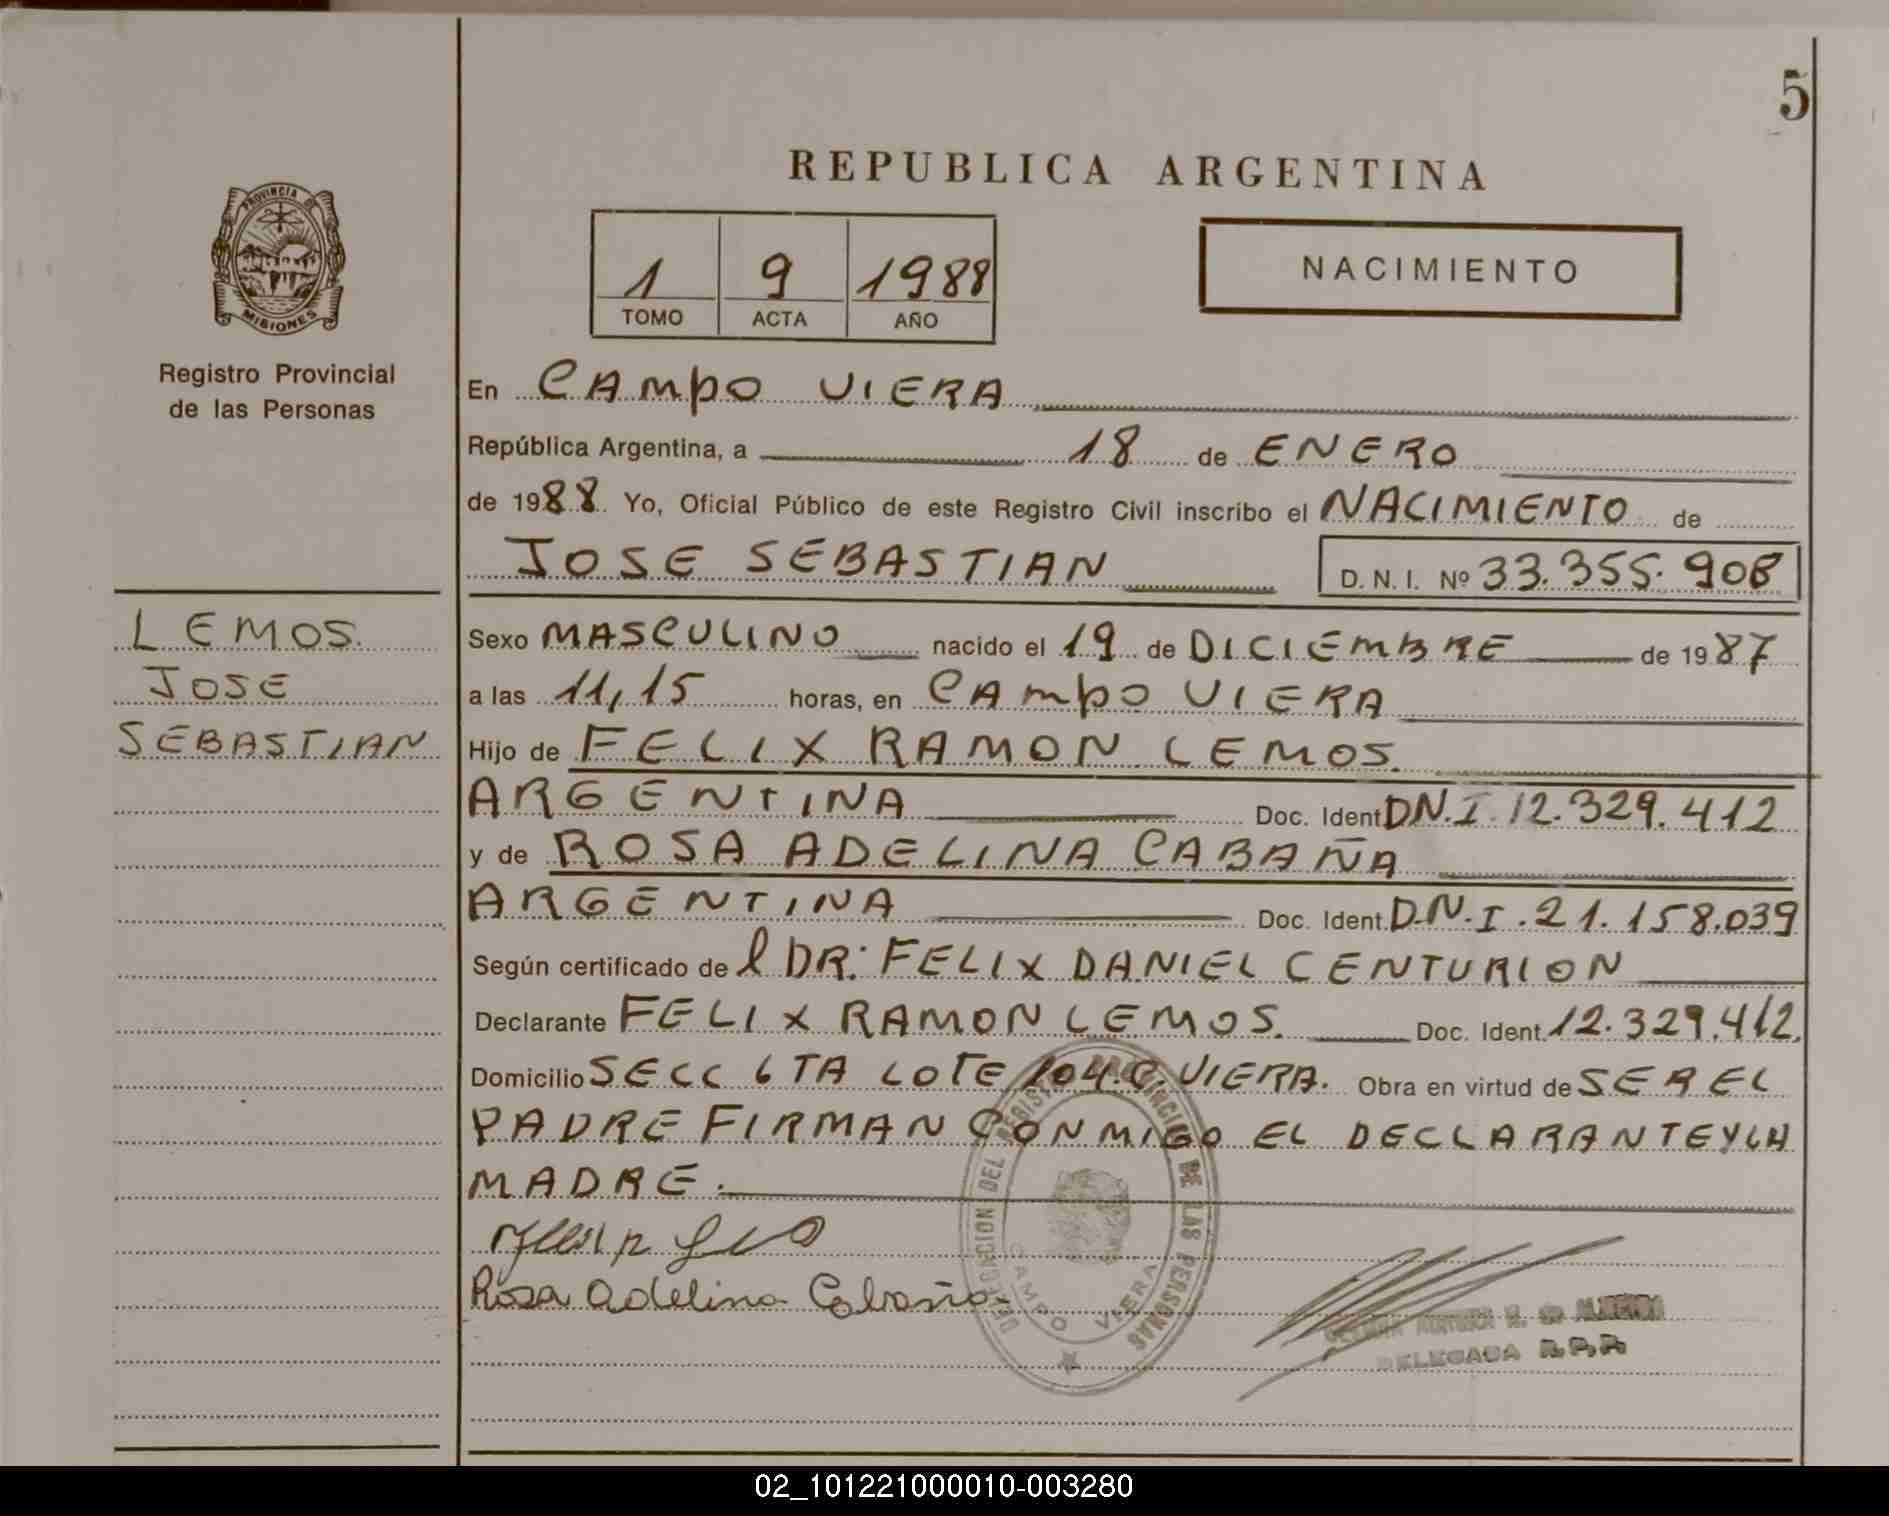 5
REPUBLICA ARGENTINA
PROVINCIA DE
MISIONES
Registro Provincial
de las Personas
1 9 1988
TOMO ACTA AÑO
NACIMIENTO
En CAMPO VIERA
República Argentina, a 18 de ENERO
de 1988. Yo, Oficial Público de este Registro Civil inscribo el NACIMIENTO de
JOSE SEBASTIAN D. N. I. Nº 33.355.908
LEMOS
JOSE
SEBASTIAN
Sexo MASCULINO nacido el 19 de DICIEMBRE de 1987
a las 11,15 horas, en CAMPO VIERA
Hijo de FELIX RAMON LEMOS
ARGENTINA Doc. Ident D.N.I. 12.329.412
y de ROSA ADELINA CABAÑA
ARGENTINA Doc. Ident. D.N.I. 21.158.039
Según certificado de l DR: FELIX DANIEL CENTURION
Declarante FELIX RAMON LEMOS. Doc. Ident. 12.329.412.
Domicilio SECC 6 TA LOTE 104. C. VIERA. Obra en virtud de SER EL
PADRE FIRMAN CONMIGO EL DECLARANTE Y LA
MADRE.
Rosa Adelina Cabaña
DELEGACION DEL REGISTRO PROVINCIAL DE LAS PERSONAS
CAMPO VIERA
DELEGADA R.P.P.
02_101221000010-003280